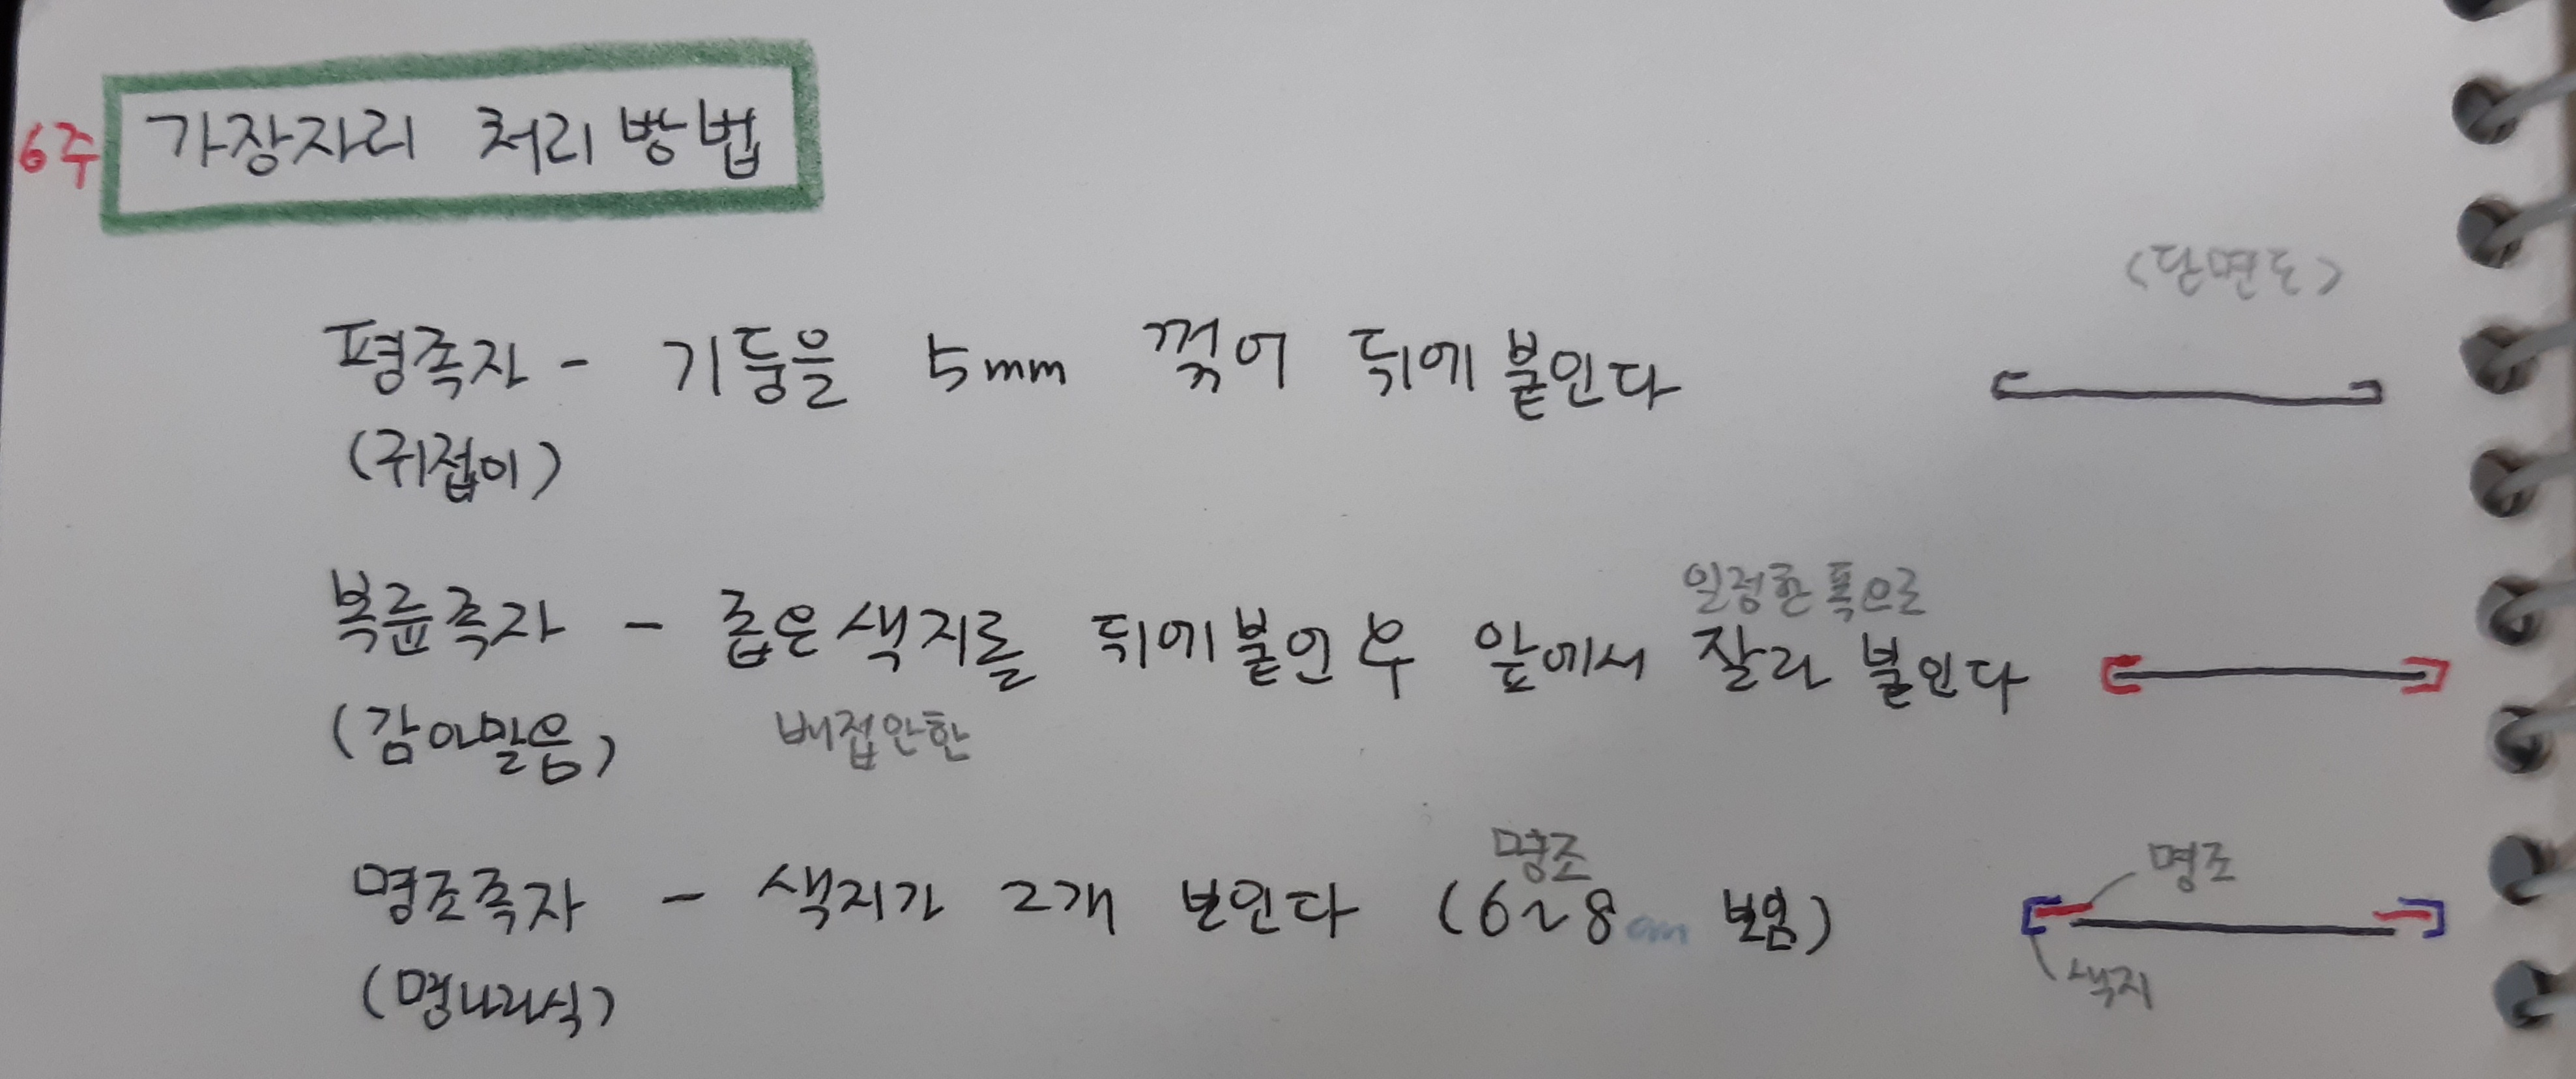 6주 가장자리 처리방법
(단면도)
평족자 - 기둥을 5mm 꺾어 뒤에 붙인다
(귀접이)
일정한 폭으로
복륜족자 - 좁은 색지를 뒤에 붙인 후 앞에서 잘라 붙인다
(감아말음) 배접안한
명조 명조
명조족자 - 색지가 2개 보인다 (6~8 보임)
색지
(명나라식)